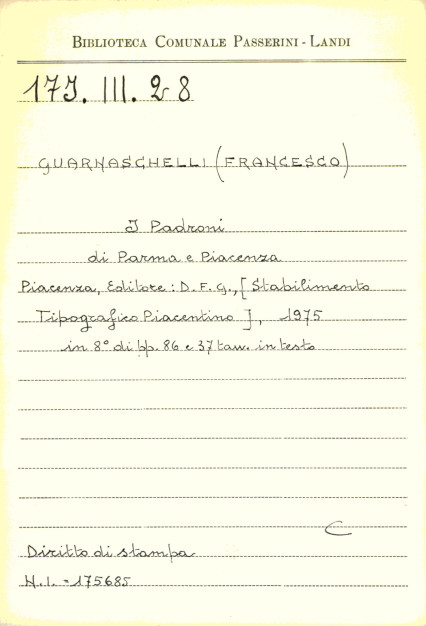 BIBLIOTECA COMUNALE PASSERINI - LANDI
17J. III. 28
GUARNASCHELLI (FRANCESCO)
I Padroni
di Parma e Piacenza
Piacenza, Editore: D.F.G., [Stabilimento
Tipografico Piacentino], 1975
in 8° di pp. 86 e 37 tav. in testo
C
Diritto di stampa
N.I. = 175685